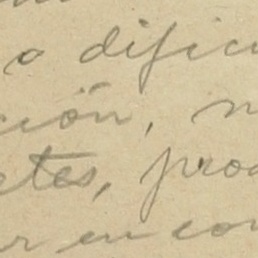 o dificu
ción, n
etes, proc
ar en con